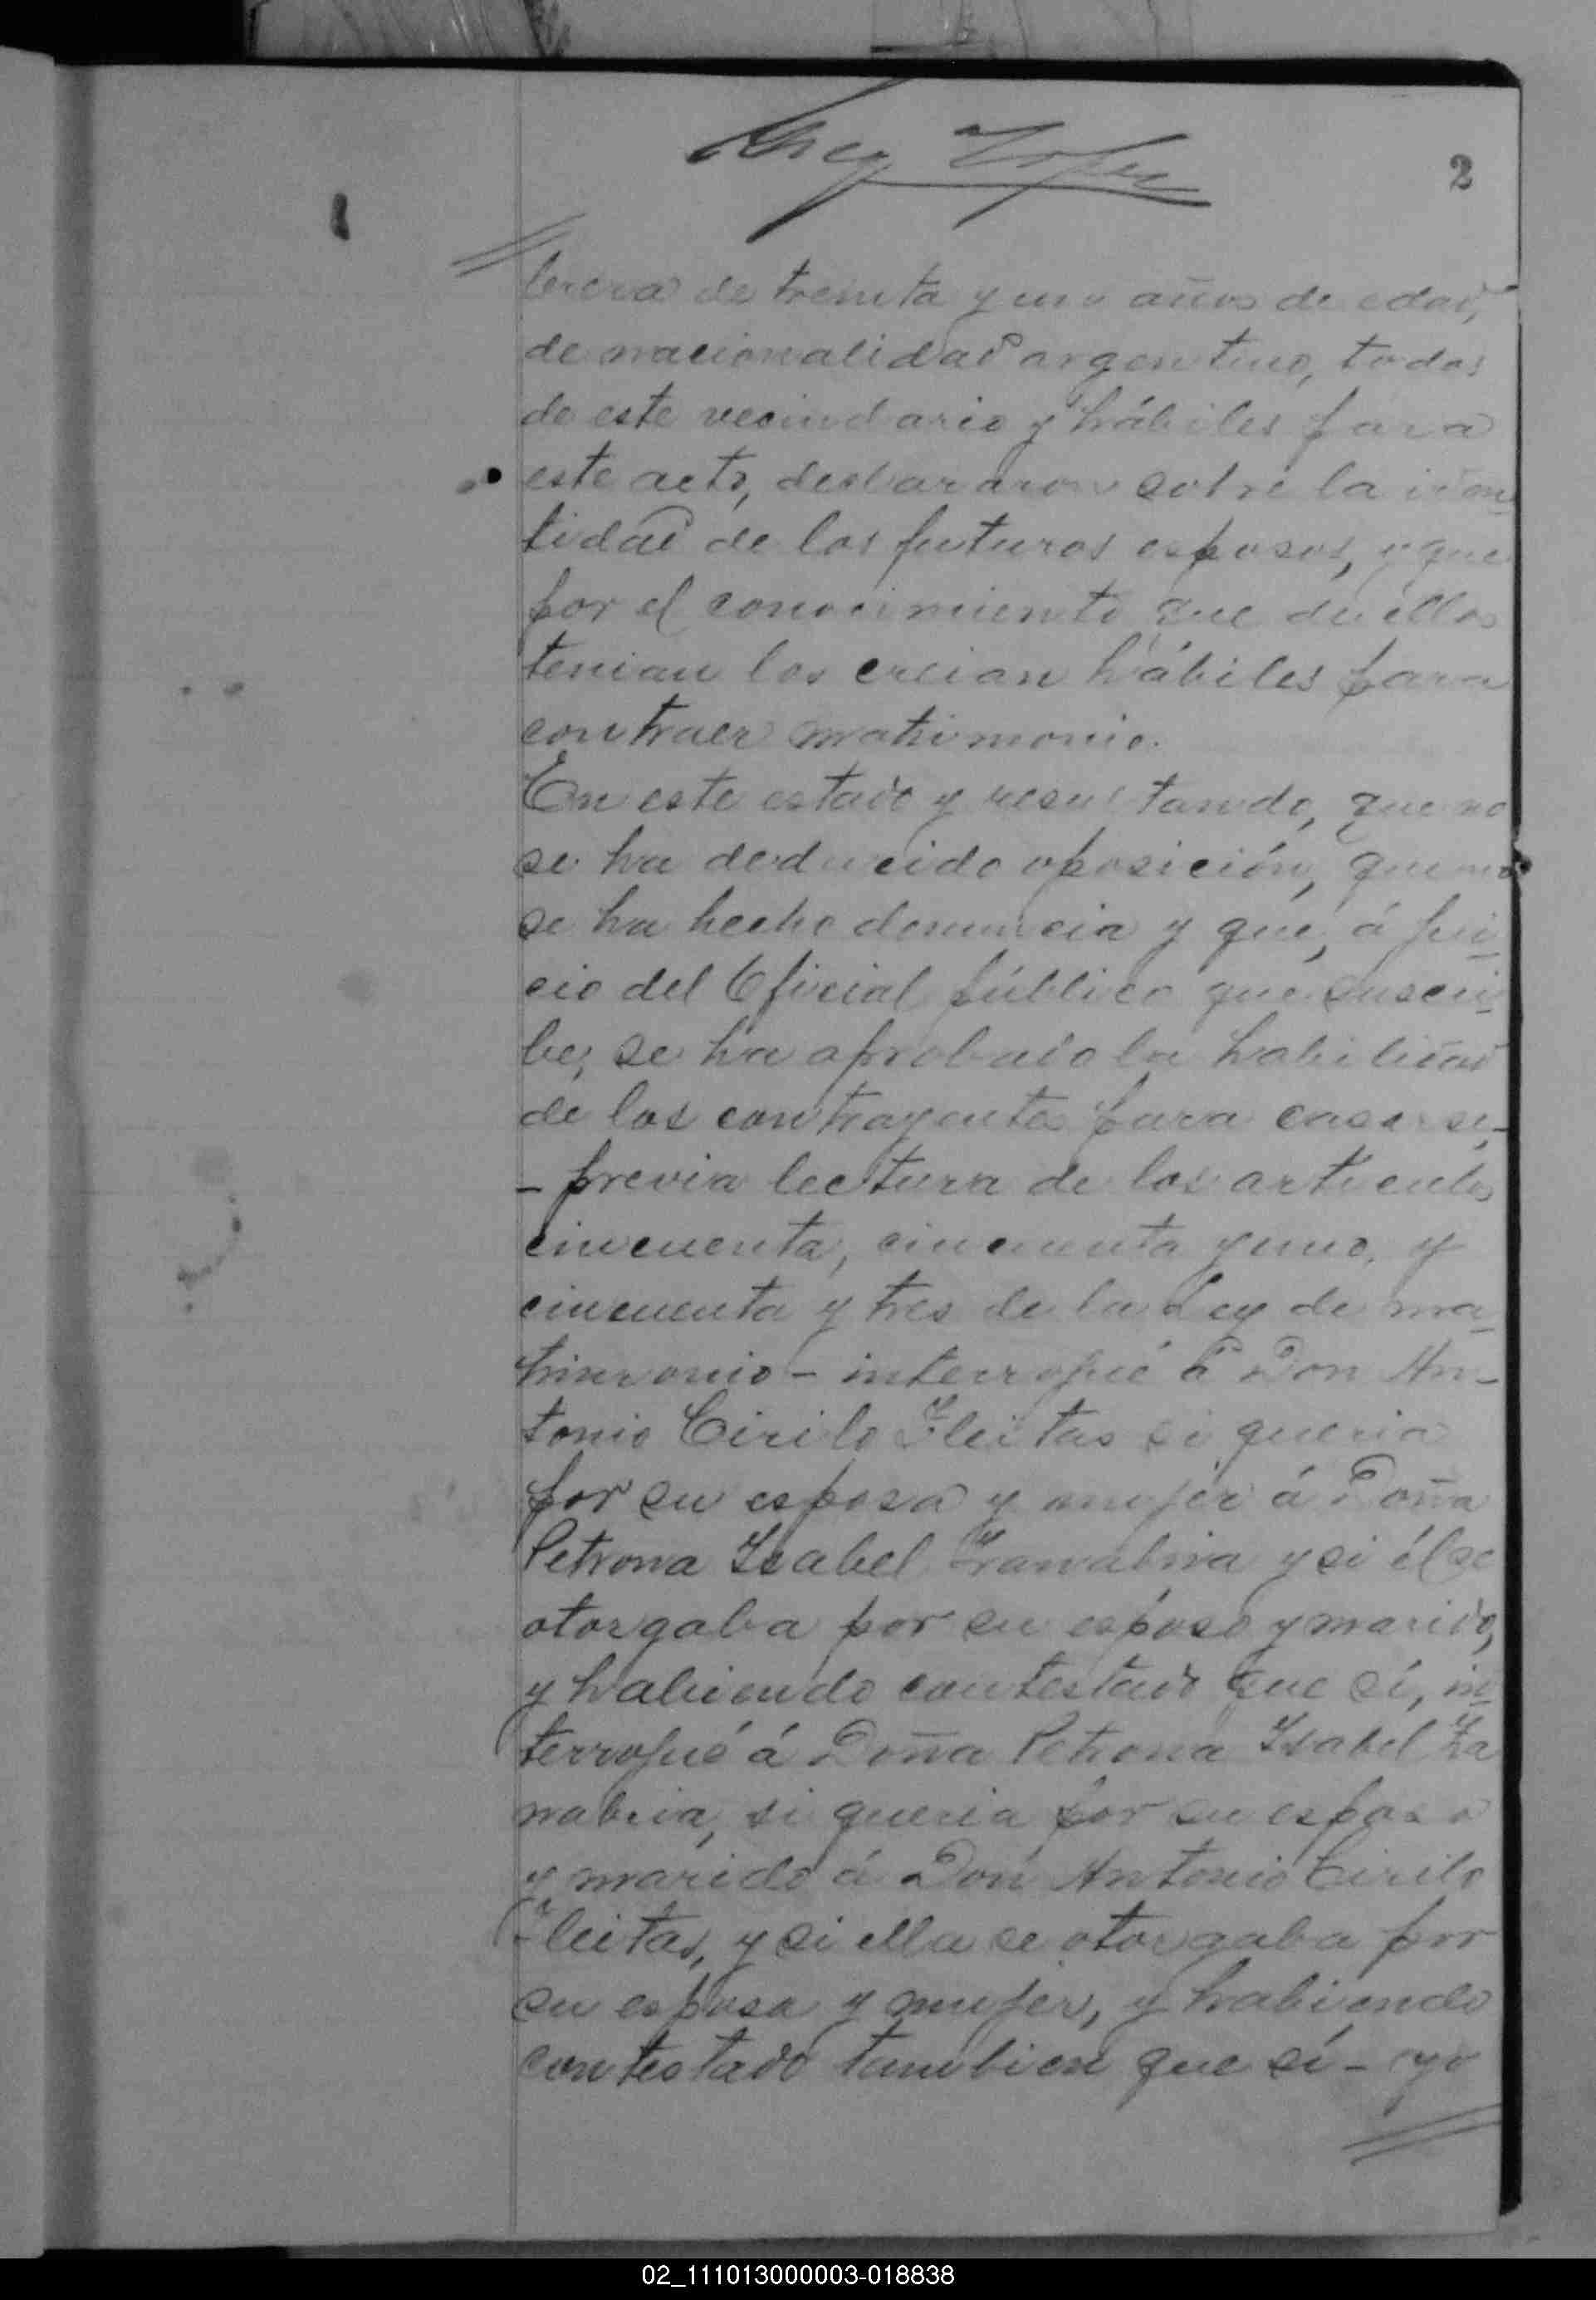 2
tercera de treinta y uno años de edad,
de nacionalidad argentino, todos
de este vecindario y hábiles para
este acto, declararon sobre la iden_
tidad de los futuros esposos, y que
por el conocimiento que de ellos
tenian los creian hábiles para
contraer matrimonio.
En este estado y resultando, que no
se ha deducido oposición, que no
se ha hecho denuncia y que, á jui_
cio del Oficial público que suscri_
be, se ha aprobado la habilidad
de los contrayentes para casarse,_
_ previa lectura de los articulos
cincuenta, cincuenta y uno, y
cincuenta y tres de la Ley de ma_
trimonio - interrogué á Don An_
tonio Cirilo Fleitas si queria
por su esposa y mujer á Doña
Petrona Isabel Zanabria y si él se
otorgaba por su esposo y marido,
y habiendo contestado que sí, in_
terrogué á Doña Petrona Isabel Za
nabria, si queria por su esposo
y marido á Don Antonio Cirilo
Fleitas, y si ella se otorgaba por
su esposa y mujer, y habiendo
contestado tambien que sí - yo
02_111013000003-018838